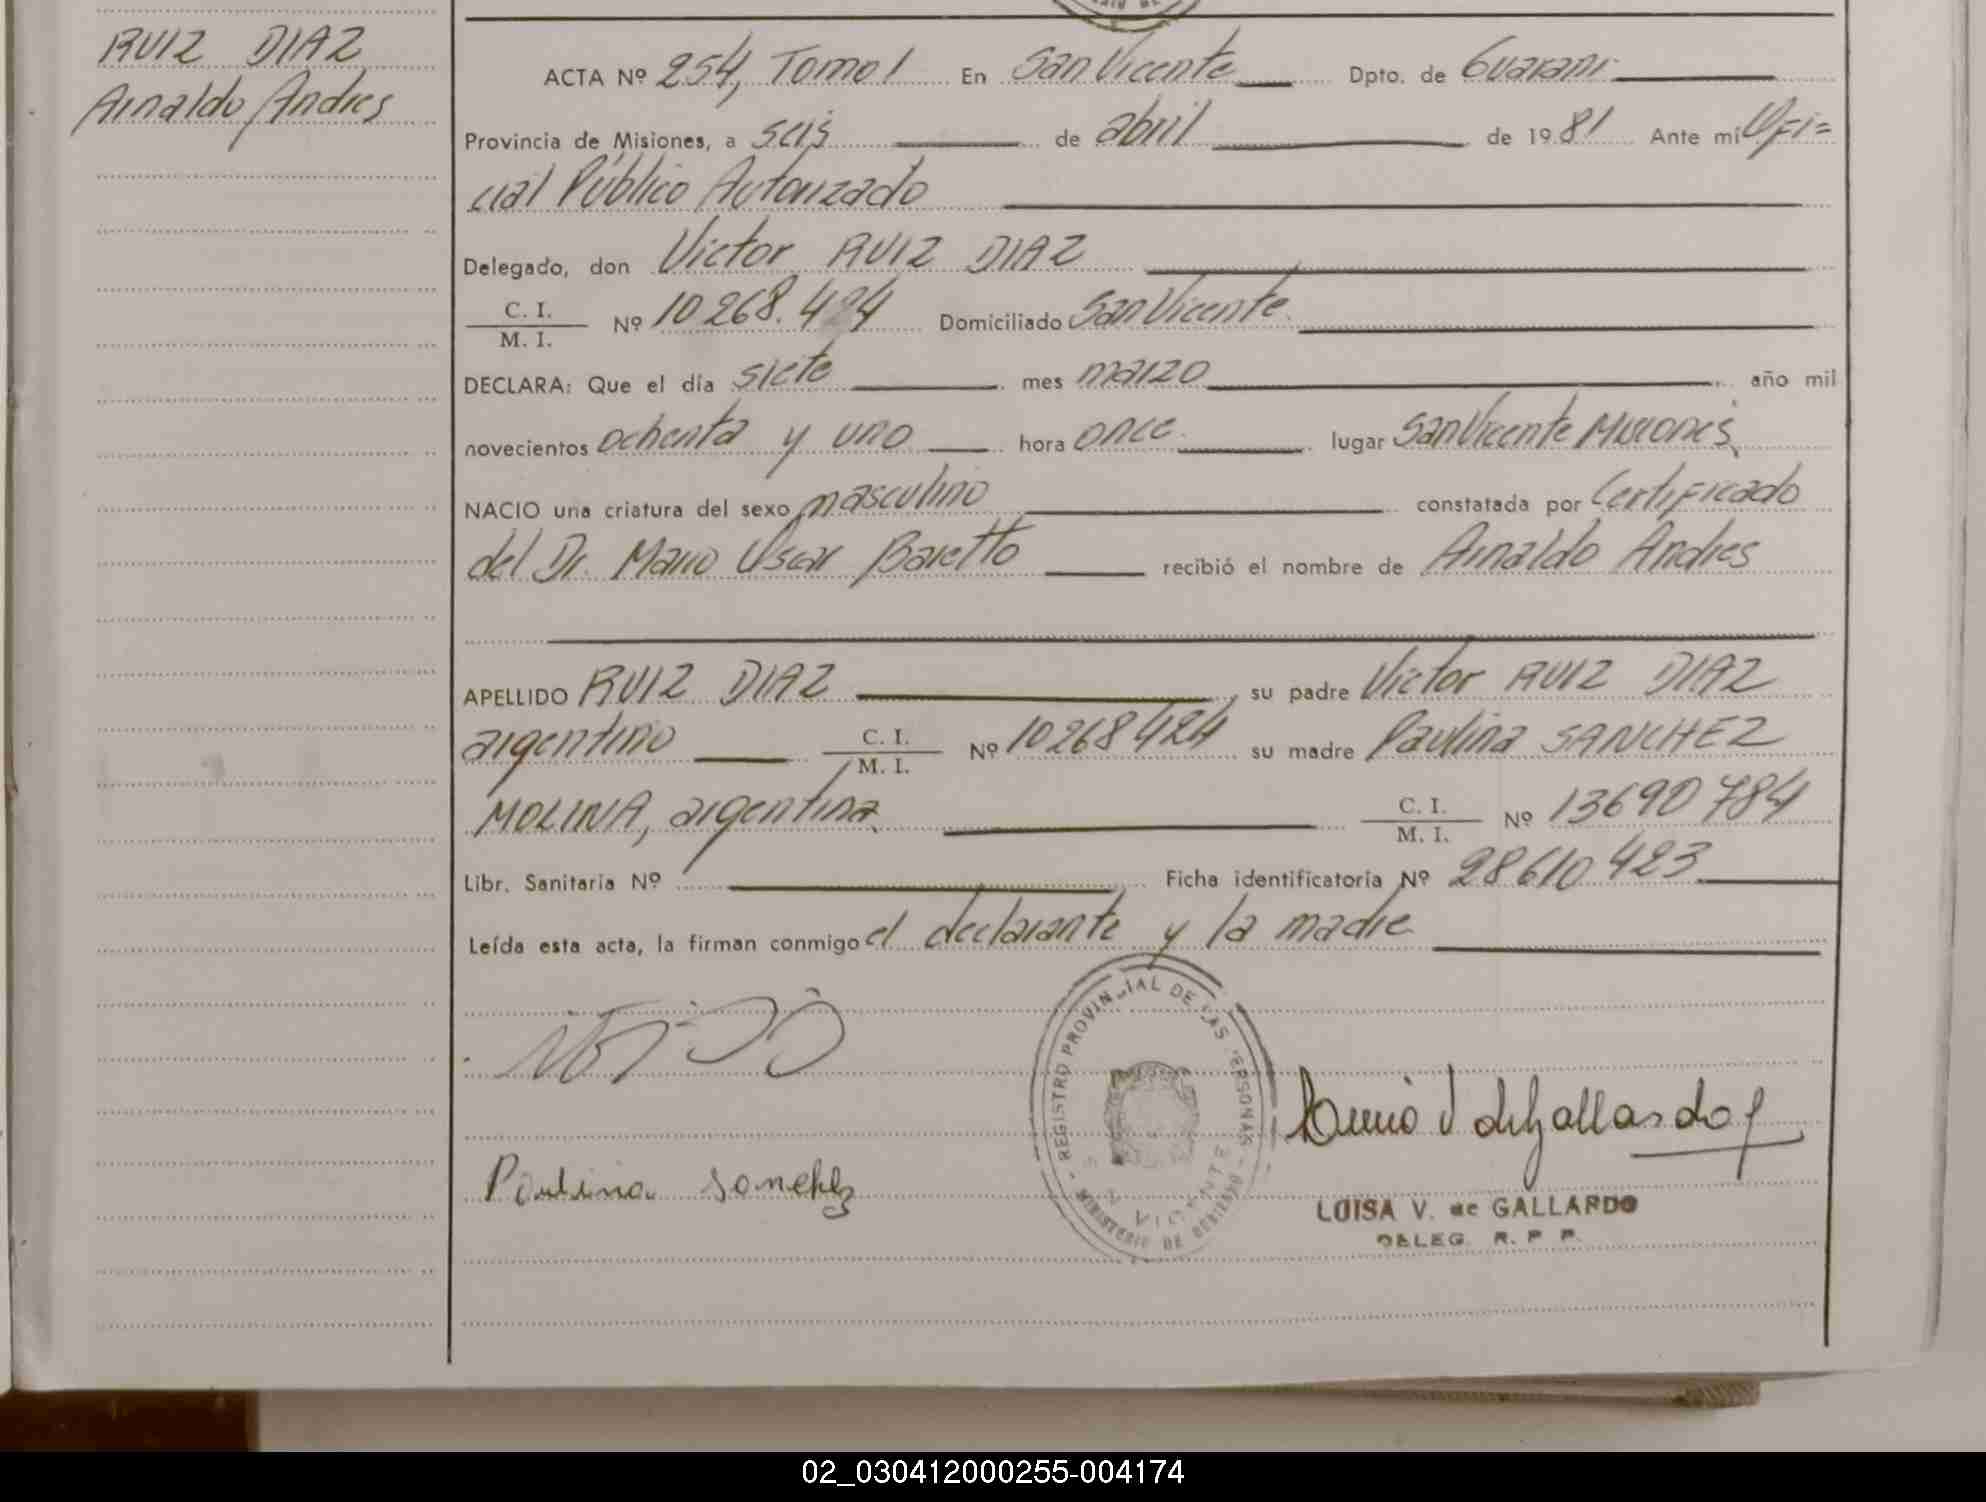 RUIZ DIAZ
Arnaldo Andres
ACTA Nº 254, Tomo I En San Vicente Dpto. de Guarani
Provincia de Misiones, a seis de abril de 1981 Ante mi Ofi=
cial Público Autorizado
Delegado, don Victor RUIZ DIAZ
C. I.
M. I. Nº 10268.424 Domiciliado San Vicente
DECLARA: Que el día siete mes marzo año mil
novecientos ochenta y uno hora once lugar San Vicente Misiones,
NACIO una criatura del sexo masculino constatada por Certificado
del Dr. Mario Oscar Baretto recibió el nombre de Arnaldo Andres
APELLIDO RUIZ DIAZ, su padre Victor RUIZ DIAZ
argentino C. I. M. I. Nº 10268424 su madre Paulina SANCHEZ
MOLINA, argentina C. I. M. I. Nº 13690784
Libr. Sanitaria Nº Ficha identificatoria Nº 28610423
Leída esta acta, la firman conmigo el declarante y la madre
REGISTRO PROVINCIAL DE LAS PERSONAS
MINISTERIO DE GOBIERNO
VICENTE
Paulina Sanchez
LUISA V. de GALLARDO
DELEG. R. P. P.
02_030412000255-004174